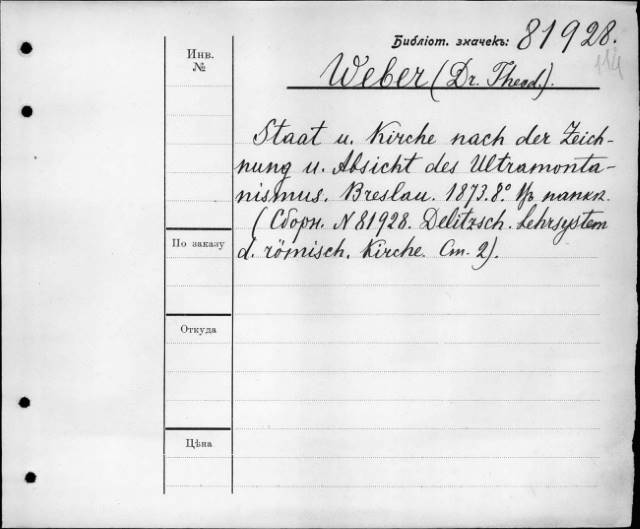 Библіот. значекъ: 81928.
Инв.
№
Weber (Dr. Theod.).
Staat u. Kirche nach der Zeich-
nung u. Absicht des Ultramonta-
nismus. Breslau. 1873. 8° Въ папкѣ.
(Сборн. N 81928. Delitzsch. Lehrsystem
По заказу
d. römisch. Kirche. Ст. 2).
Откуда
Цѣна